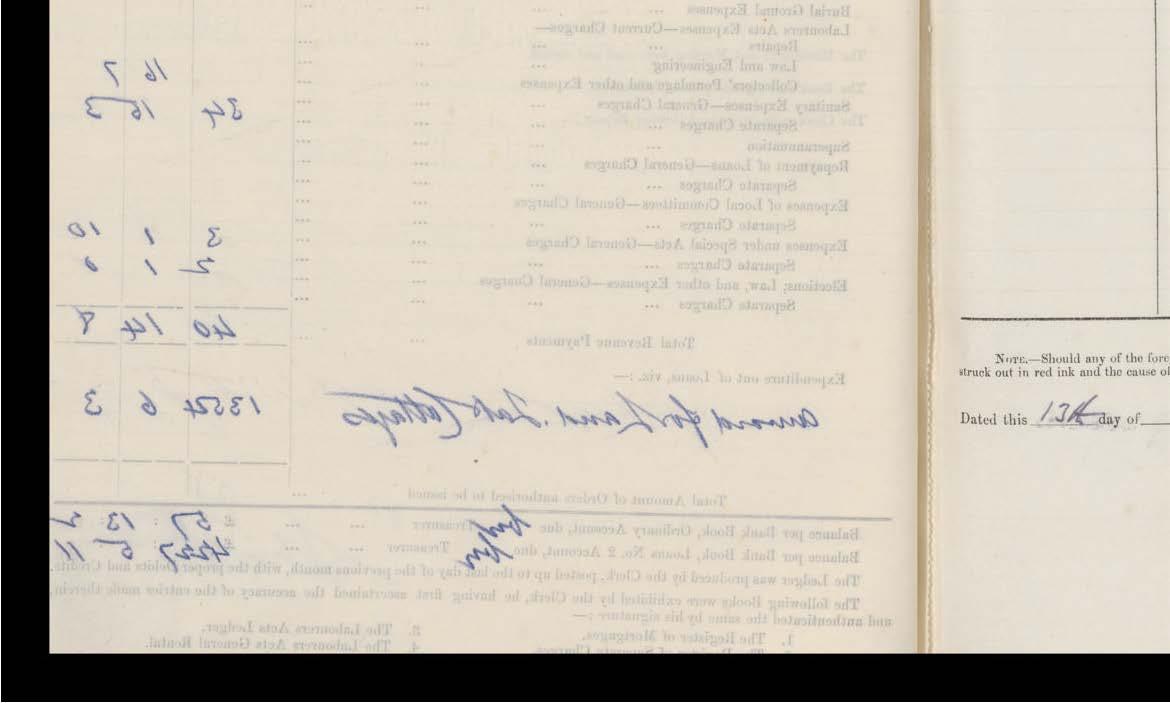 Burial Ground Expenses ... ... ...
Labourers Acts Expenses—Current Charges—
Repairs ... ... ... ...
Law and Engineering ... ... ...
Collectors' Poundage and other Expenses ... ... 16 7
Sanitary Expenses—General Charges ... ... 34 16 3
Separate Charges ... ... ... ...
Superannuation ... ... ...
Repayment of Loans—General Charges ... ... ...
Separate Charges ... ... ...
Expenses of Local Committees—General Charges ... ...
Separate Charges ... ... ... ...
Expenses under Special Acts—General Charges ... ... 3 1 10
Separate Charges ... ... ... ... 2 1 0
Elections; Law, and other Expenses—General Charges ... ...
Separate Charges ... ... ... ...
Total Revenue Payments ... ... 40 14 8
Expenditure out of Loans, viz. :—
Award for Land. Lab Cottages 1354 6 3
Total Amount of Orders authorised to be issued ...
Balance per Bank Book, Ordinary Account, due by Treasurer ... ... £ 57 : 13 : 2
Balance per Bank Book, Loans No. 2 Account, due by Treasurer ... ... £ 4227 : 5 11
The Ledger was produced by the Clerk, posted up to the last day of the previous month, with the proper Debits and Credits.
The following Books were exhibited by the Clerk, he having first ascertained the accuracy of the entries made therein,
and authenticated the same by his signature :—
1. The Register of Mortgages. 3. The Labourers Acts Ledger.
2. The Register of Separate Charges. 4. The Labourers Acts General Rental.
NOTE.—Should any of the fore
struck out in red ink and the cause of
Dated this 13th day of